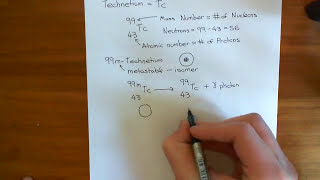 Technetium = Tc
99 Tc 43
Mass Number = # of Nucleons
Neutrons = 99 - 43 = 56
Atomic number = # of Protons
99m-Technetium
metastable - isomer
99m Tc 43 → 99 Tc 43 + γ photon